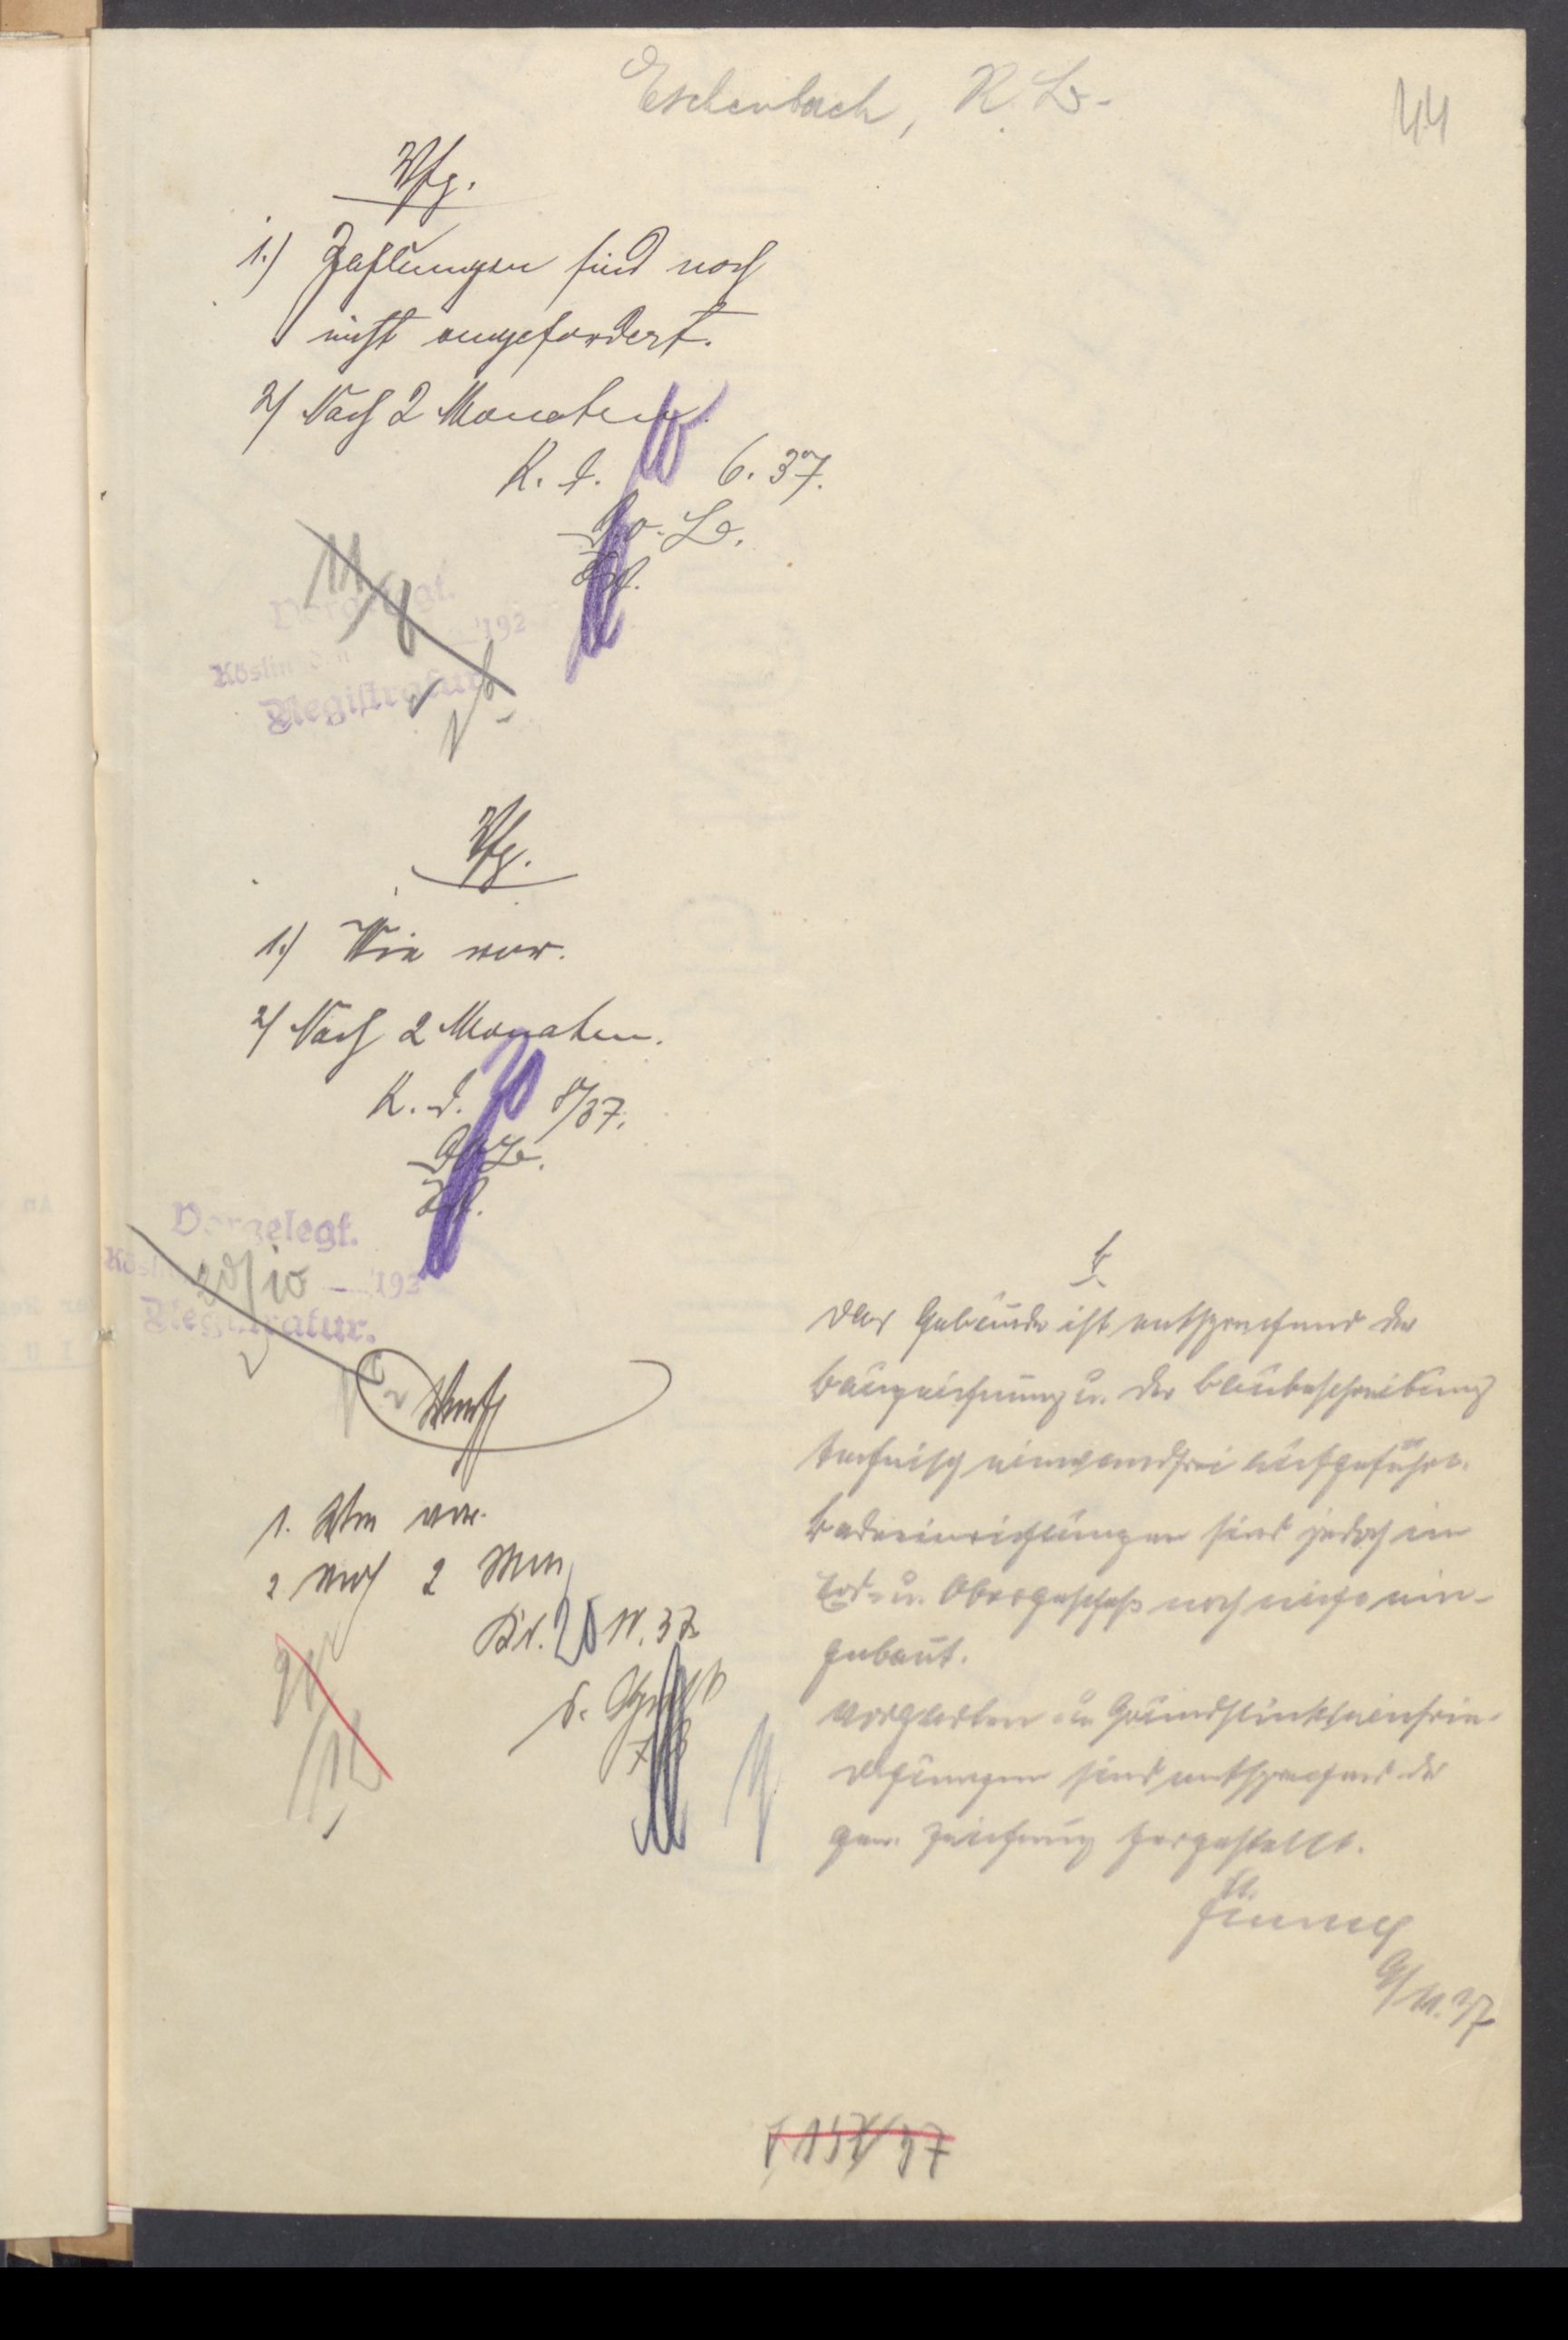 Eschenbach, R. L.
44
Vfg.
1.) Zahlungen sind noch
nicht angefordert.
2/ Nach 2 Monaten.
K. d. 10 6. 37.
11/8
Vorgelegt.
Köslin, den 192
Registratur
Vfg.
1.) Wie vor.
2/ Nach 2 Monaten.
K. d. 20 8/37.
Vorgelegt.
Kösl 193
20/10
Registratur.
1. Wie vor.
2 Nach 2 Mon
Kd. 20 10. 37
20/12
b
Das Gebäude ist entsprechend der
Bauzeichnung u. der Baubeschreibung
technisch einwandfrei ausgeführt.
Badeeinrichtungen sind jedoch im
Erd- u. Obergeschoß noch nicht ein-
gebaut.
Vorgarten u. Grundstückseinfrie-
digungen sind entsprechend der
gen. Zeichnung hergestellt.
9/11. 37
157/37